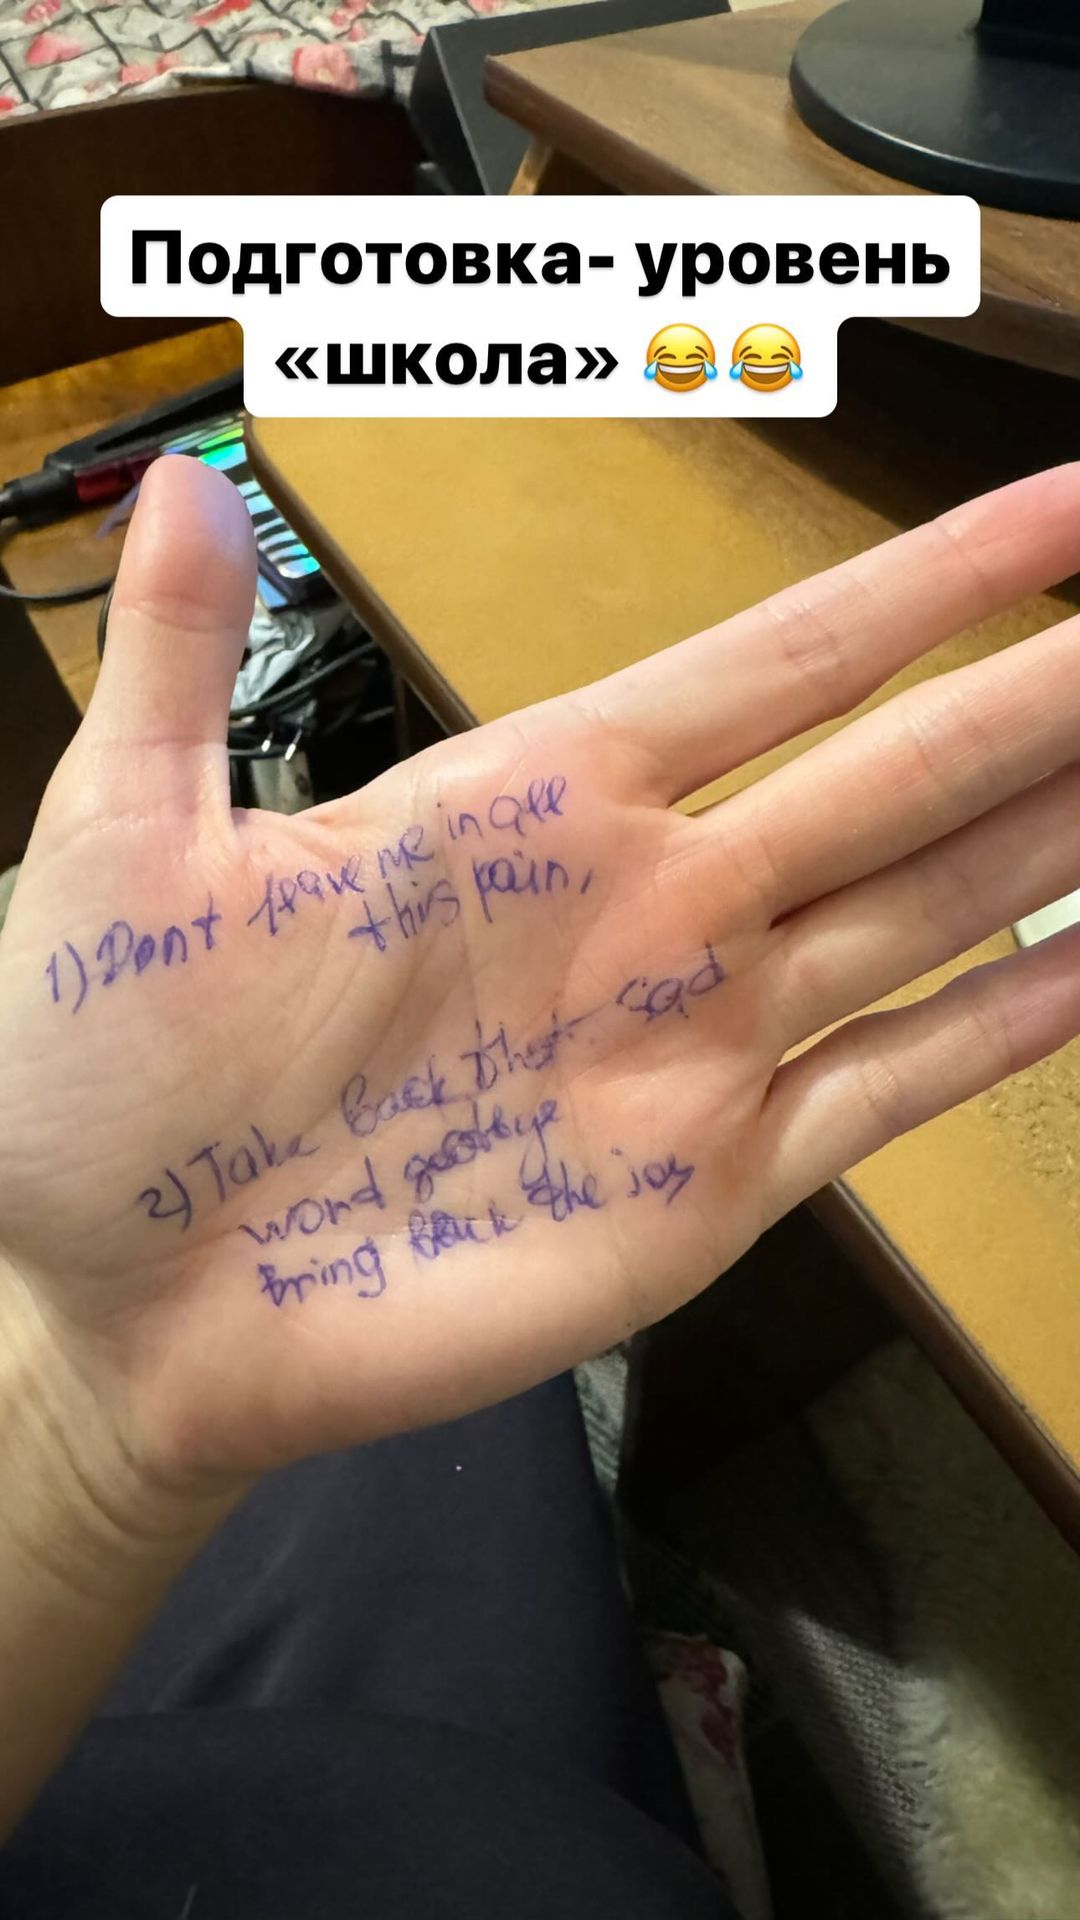 Подготовка- уровень
«школа» 😂😂
1) Dont leave me in all
this pain,
2) Take back that sad
word goodbye
bring back the joy